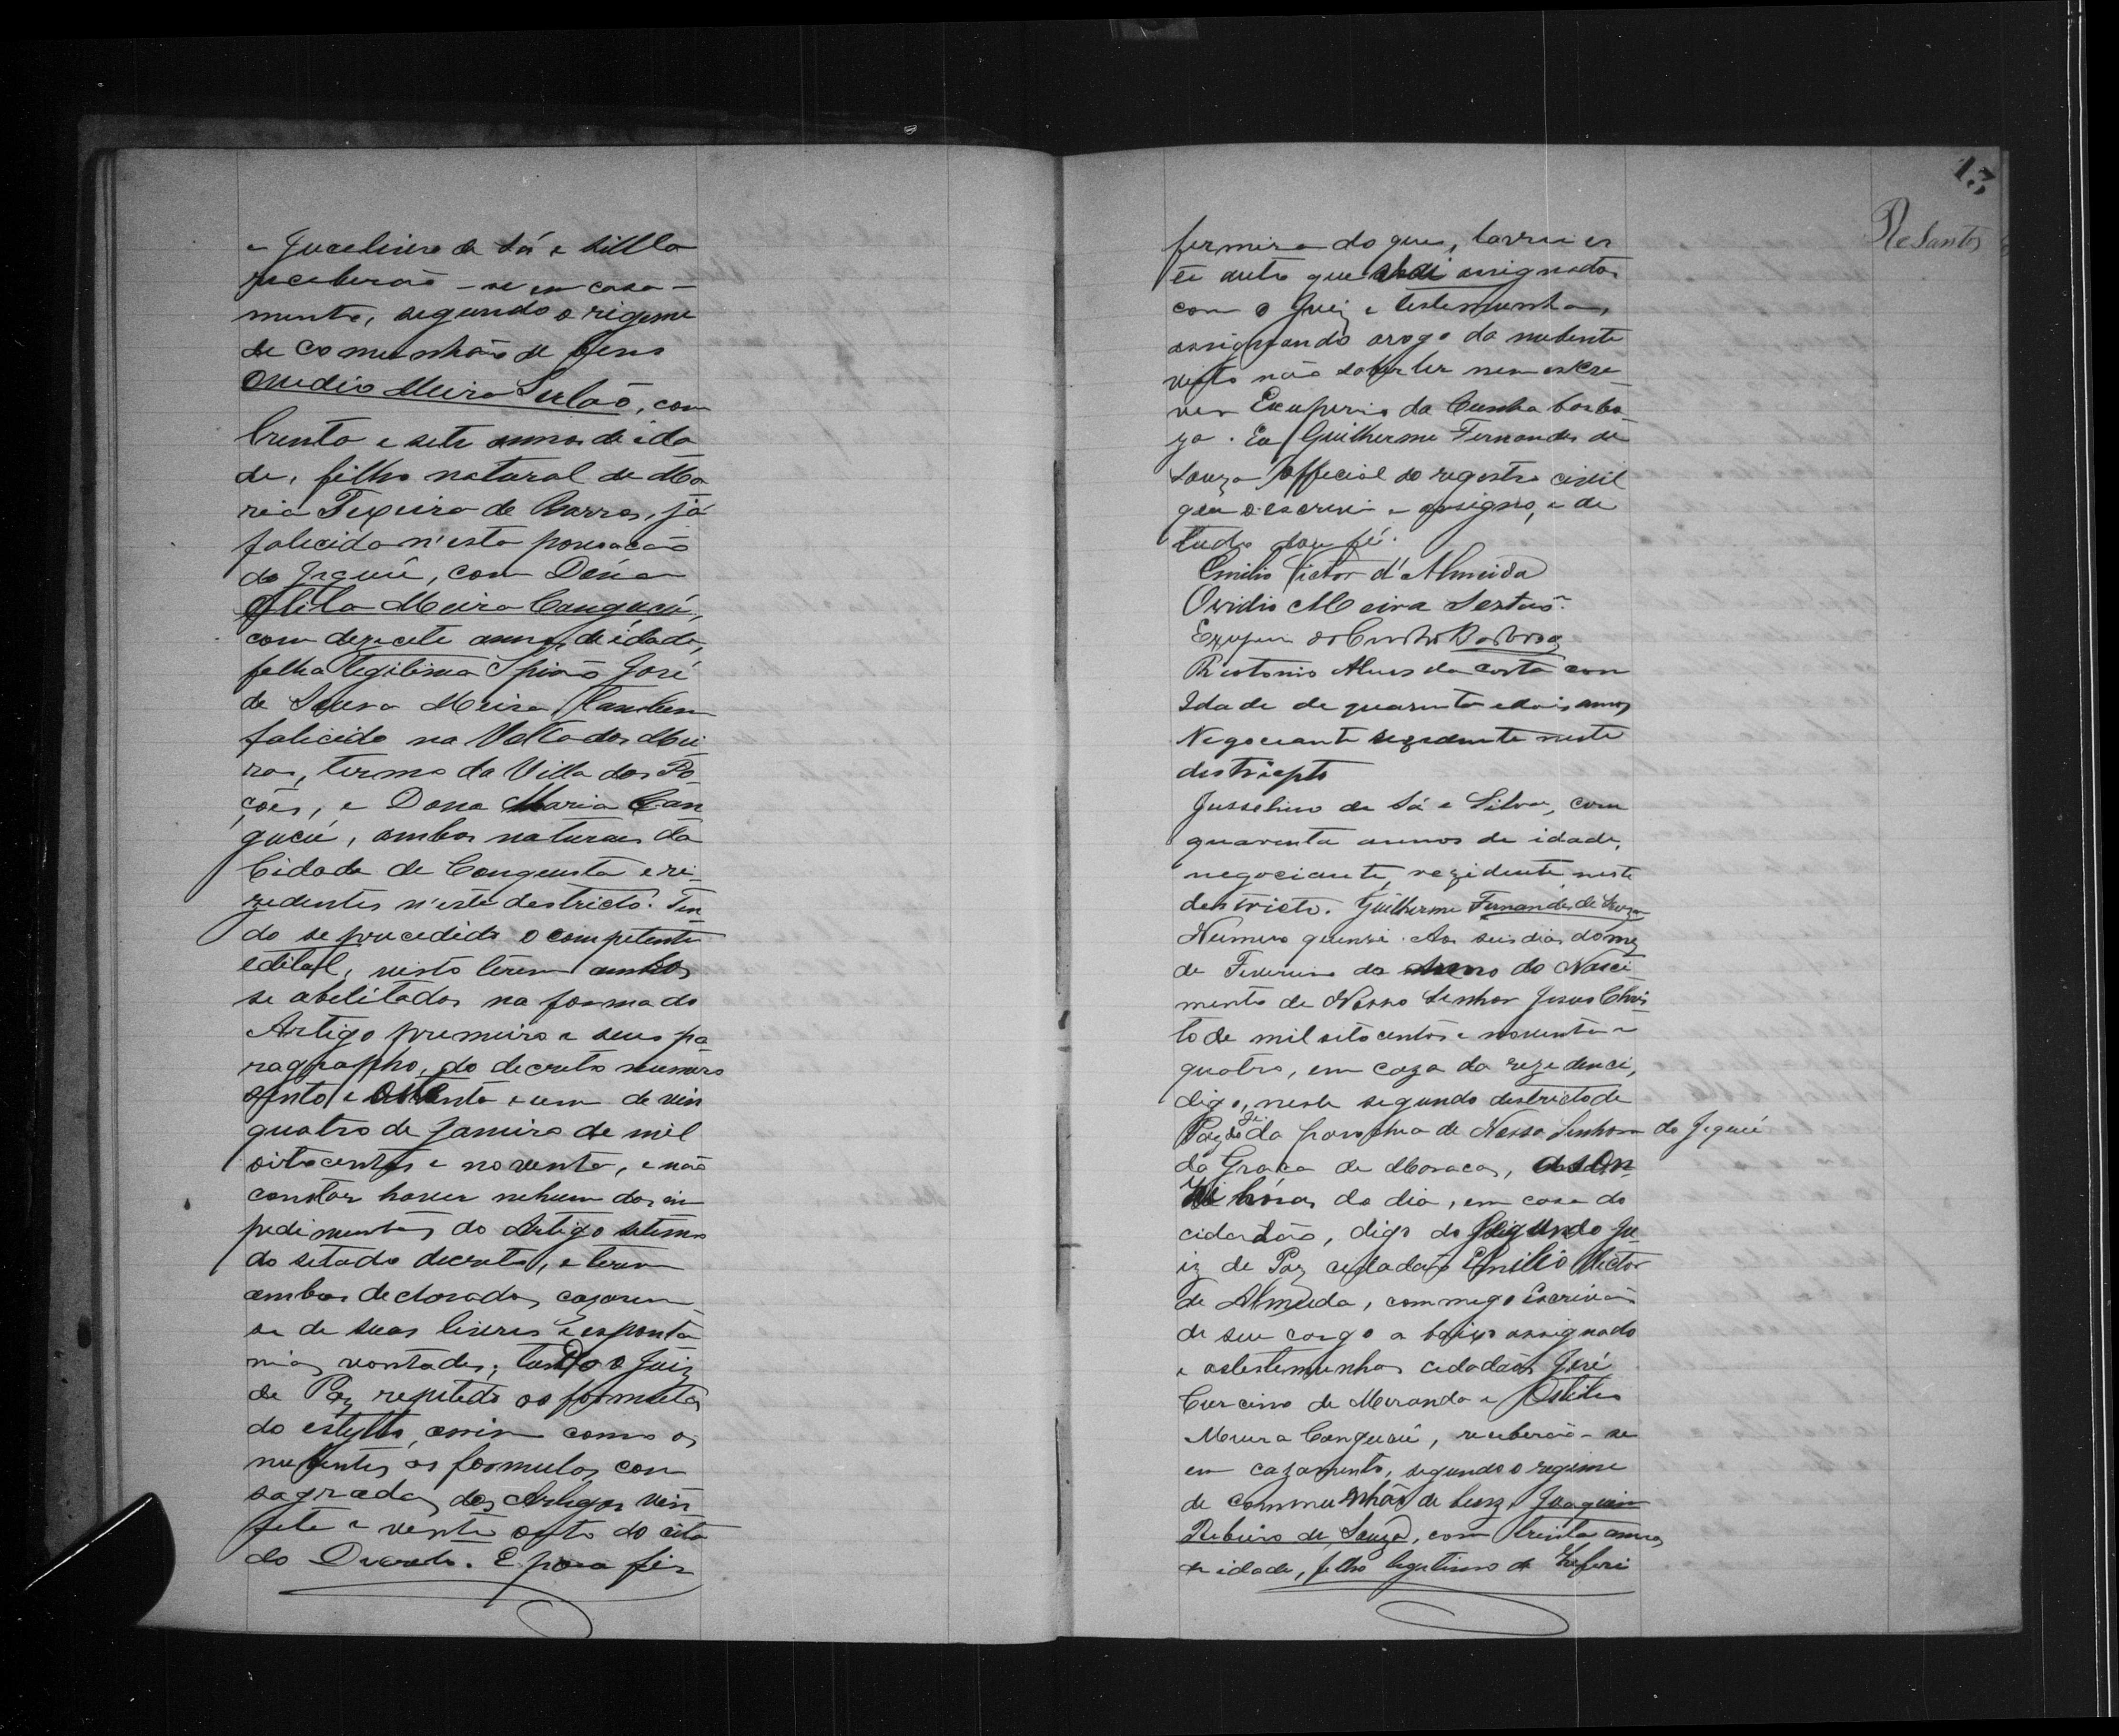 e Jucelino de Sá e Sillla
receberão-se em casa-
mento, segundo o rigeme
de comunhão de bens
Ovedio Meira Sertão, com
trenta e sete annos de ida
de, filho natural de Ma
ria Texeira de Barros, já
falicida n'esta povoacão
do Jequié, com Dóna
Otila Meira Canguçú,
com dezecete annos de idade,
felha legitima Spino José
de Souza Meira, tambem
falicido na Volta dos Mei
ras, termo da Villa dos Po
ções, e Dona Maria Can
gucú, ambos naturaes da
Cidade de Conquista e re
zedentes n'este destricto. Ten
do se procedido o competente
edital, visto terem ambos
se abelitados na forma do
Artigo premeiro e seus pa
ragrapho, do decreto numero
sento e oitenta e um de vin
quatro de Janeiro de mil
oitocentos e noventa, e não
constar haver nehum dos im
pedimentos do Artigo setimo
do setado decreto, e terem
ambos declarados cazarem
se de suas livres e esponta
nias vontades; tendo o Juiz
de Paz repetido as formulas
do estyllo, assim como os
nubentes as formulas con
sagradas dos Artigos vin
sete e vente outo do cita
do Decreto. E para fir
15
R c Santos
fermeza do que, lavrei es
te auto que vai assignados
com o Juiz e testemunhas,
assignando arogo da nubente
visto não saber ler nem escre
ver Exuperio da Cunha barbo
za. Eu Guilherme Fernandes de
Souza Official do registro civil
que o escrevi e assigno, e de
tudo dou fé.
Emilio Victor d'Almeida
Ovidio Meira Sertão.
Exuperio da Cunha Barbosa
Alves da Costa con
Idade de quarenta e dois annos
Negociante rezedente neste
destricpto
Jusselino de Sá e Silva, com
quarenta annos de idade,
negociante, rezidente neste
destricto. Guilherme Fernandes de Souza
Numero quinze. Aos seis dias do mez
de Fevereiro do Anno do Nasci
mento de Nosso Senhor Jesus Chris
to de mil oito centos e noventa e
quatro, em caza da rezedenci,
digo, neste segundo destricto de
Paz do da parochia de Nossa Senhora do Jequié
da Graça de Maracas, as on
ze hóras do dia, em casa do
cidadão, digo do segundo Ju
iz de Paz cidadão Emilio Victor
de Almeida, commigo Escrivão
de seu cargo a baixo assignado
e as testemunhas cidadãos José
Curcino de Meranda e
Meira Canguçú, receberão-se
em cazamento, segundo o regime
de communhão de bens Joaquim
Rebeiro de Souza, com trinta annos
de idade, filho legetimo de Zeferi